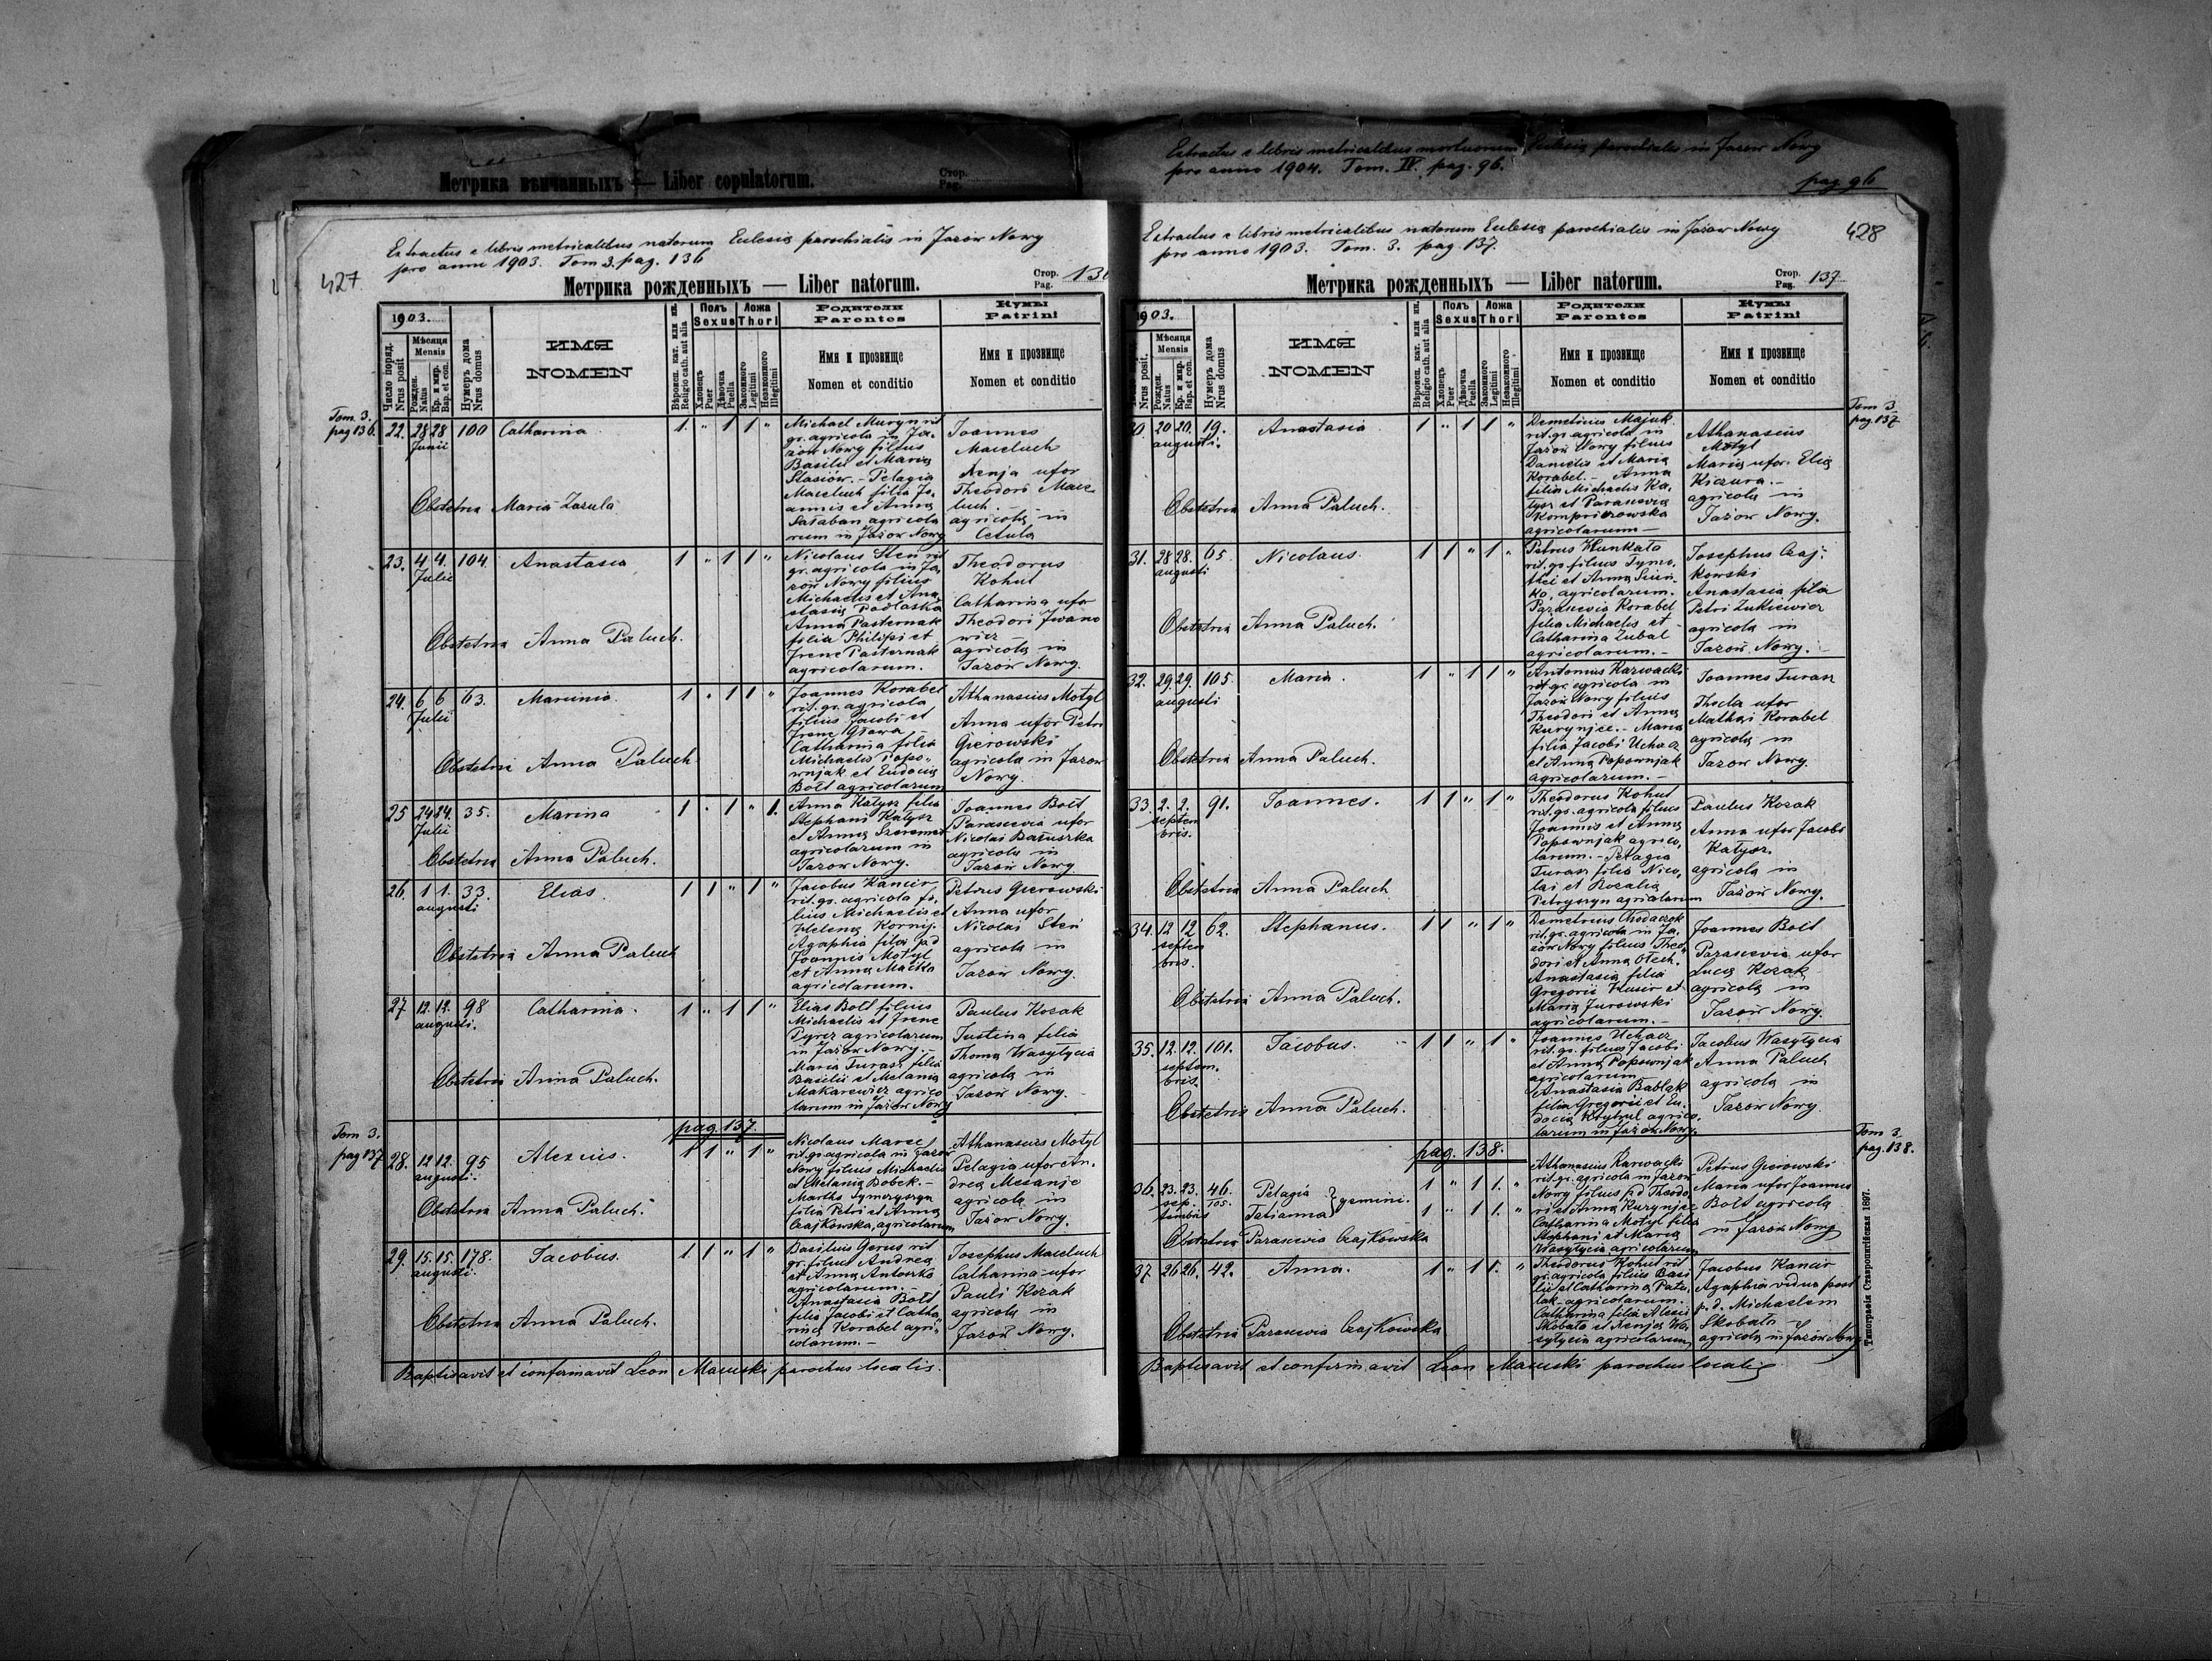 Метрика вѣнчанныхъ — Liber copulatorum.
Стор.
Pag.
Extractus e libris metricalibus mortuorum Eclesiæ parochialis in Jazow Nowy
pro anno 1904. Tom. IV. pag. 96.
pag 96
427
Extractus e libris metricalibus natorum Eclesiæ parochialis in Jazów Nowy
pro anno 1903. Tom 3. pag. 136
Метрика рожденныхъ — Liber natorum.
Стор.
Pag.
1903.
Число поряд.
Nrus posit
Мѣсяця
Mensis
Рожден.
Natus
Кр. и мир.
Bap. et con.
Нумеръ дома
Nrus domus
ИМЯ
NOMEN
Вѣроисп. кат. или ин.
Religio cath. aut alia
Полъ
Sexus
Хлопець
Puer
Дѣвочка
Puella
Ложа
Thori
Законного
Legitimi
Незаконного
Illegitimi
Родители
Parentes
Имя и прозвище
Nomen et conditio
Кумы
Patrini
Имя и прозвище
Nomen et conditio
Tom. 3.
pag 136.
22. 28 28 100 Catharina 1 " 1 1 "
Junii
Michael Muryn rit
gr. agricola in Ja-
zow Nowy filius
Basilii et Maria
Stasiów. - Pelagia
Maceluch filia Jo-
annis et Anna
agricola
rum in Jazow Nowy
Joannes
Maceluch
Xenja uxor
Theodori Mace-
luch. -
agricolæ in
Cetula
Obstetrix Maria Zazula
23. 4 4. 104. Anastasia 1 " 1 1 "
Julii
Nicolaus Sten rit
gr. agricola in Ja-
zow Nowy filius
Michaelis et Ana-
stasia Podlaska
Anna Pasternak
filia Philipi et
Irene Pasternak
agricolarum.
Theodorus
Kohut
Catharina uxor
Theodori Iwano
wicz -
agricolæ in
Jazów Nowy.
Obstetrix Anna Paluch.
24. 6 6 63. 1 " 1 1 "
Julii
Joannes Korabel
rit. gr. agricola
filius Jacobi et
Irene
Catharina filia
Michaelis Popo-
wnjak et Eudocia
Bolt agricolarum
Athanasius Motyl
Anna uxor Petri
Gierowski
agricola in Jazow
Nowy.
Obstetrix Anna Paluch
25 24 24. 35. Marina 1 " 1 " 1.
Julii
Anna Katysz filia
Stephani Katysz
et Anna
agricolarum in
Jazow Nowy.
Joannes Bolt
Parascevia uxor
Nicolai
agricola in
Jazów Nowy
Obstetrix Anna Paluch.
26. 1 1. 33. Elias. 1 1 " 1 "
augusti
Jacobus Kancir
rit. gr. agricola fi-
lius Michaelis et
Helena Kornij.
Agaphia filia pd
Joannis Motyl
et Anna
agricolarum.
Petrus Gierowski
Anna uxor
Nicolai Sten
agricola in
Jazow Nowy.
Obstetrix Anna Paluch
27. 12. 12. 98 Catharina. 1 " 1 1 "
augusti.
Elias Bolt filius
Michaelis et Irene
Pyrcz agricolarum
in Jazow Nowy. -
Maria Turasz filia
Basilii et Melania
Makarewicz agrico
larum in Jazow Nowy
Paulus Kozak
Justina filia
Thoma Wasylycia
agricola in
Jazów Nowy.
Obstetrix Anna Paluch.
Tom 3.
pag 137
pag. 137.
28. 12 12. 95 Alexius. 1 1 " 1 "
augusti.
Nicolaus
rit. gr. agricola in Jazow
Nowy filius Michaelis
et Melania Bobek. -
Martha
filia Petri et Anna
Czajkowska, agricolarum
Athanasius Motyl
Pelagia uxor An-
drea
agricola in
Jazow Nowy.
Obstetrix Anna Paluch.
29. 15. 15. 178. Jacobus. 1 1 " 1 "
augusti.
Basilius Gerus rit
gr. filius Andrea
et Anna Antoszko
agricolarum. -
Anastasia Bolt
filia Jacobi et Catha
rina Korabel agri-
colarum. -
Josephus Maceluch
Catharina uxor
Pauli Kozak
agricola in
Jazow Nowy.
Obstetrix Anna Paluch.
Baptisavit et confirmavit Leon parochus localis.
428
Extractus e libris metricalibus natorum Eclesiæ parochialis in Jazow Nowy
pro anno 1903. Tom. 3. pag 137.
Метрика рожденныхъ — Liber natorum.
Стор.
Pag. 137
1903.
Nrus posit.
Мѣсяця
Mensis
Рожден.
Natus
Кр. и мир.
Bap. et con.
Нумеръ дома
Nrus domus
ИМЯ
NOMEN
Вѣроисп. кат. или ин.
Religio cath. aut alia
Полъ
Sexus
Хлопець
Puer
Дѣвочка
Puella
Ложа
Thori
Законного
Legitimi
Незаконного
Illegitimi
Родители
Parentes
Имя и прозвище
Nomen et conditio
Кумы
Patrini
Имя и прозвище
Nomen et conditio
Tom 3
pag 137
30. 20 20. 19. Anastasia 1 " 1 1 "
augusti.
Demetrius Majuk
rit. gr. agricola in
Jazow Nowy filius
Danielis et Maria
Korabel. - Anna
filia Michaelis Ka-
tysz et Parascevia
agricolarum -
Athanasius
Motyl
Maria uxor. Elia
Kiczura. -
agricola in
Jazow Nowy.
Obstetrix Anna Paluch.
31. 28 28. 65. Nicolaus. 1 1 " 1 "
augusti
Petrus
rit. gr. filius Tymo-
thei et Anna
agricolarum.
Parascevia Korabel
filia Michaelis et
Catharina Zubal
agricolarum. -
Josephus Czaj-
kowski
Anastasia filia
Petri Zukiewicz
agricola in
Jazow Nowy. -
Obstetrix Anna Paluch.
32. 29. 29. 105. Maria. 1 " 1 1 "
augusti
Antonius Karwacki
rit. gr. agricola in
Jazow Nowy filius
Theodori et Anna
Kurynjec. - Maria
filia Jacobi Uchacz
et Anna Popownjak
agricolarum. -
Joannes Turasz
Thecla uxor
Mathei Korabel
agricola in
Jazow Nowy.
Obstetrix Anna Paluch.
33. 2. 2. 91. Joannes. 1 1 " 1 "
septem
bris.
Theodorus Kohut
rit. gr. agricola filius
Joannis et Anna
Popownjak agrico-
larum. - Pelagia
Turasz filia Nico-
lai et Rozalia
Petryszyn agricolarum
Paulus Kozak
Anna uxor Jacobi
Katysz.
agricola in
Jazów Nowy.
Obstetrix Anna Paluch
34. 12 12 62. Stephanus. 1 1 " 1 "
septem
bris.
Demetrius Chodaczok
rit. gr. agricola in Ja-
zow Nowy filius Theo-
dori et Anna
Anastasia filia
Gregorii et
Maria Jurowski
agricolarum. -
Joannes Bolt
Parascevia uxor
Luca Kozak
agricola in
Jazow Nowy.
Obstetrix Anna Paluch.
35. 12. 12. 101. Jacobus. 1 1 " 1 "
septem.
bris.
Joannes Uchacz
rit. gr. filius Jacobi
et Anna Popownjak
agricolarum
Anastasia Bablak
filia Gregorii et Eu-
docia agrico-
larum in Jazow Nowy.
Jacobus Wasylycia
Anna Paluch
agricola in
Jazow Nowy.
Obstetrix Anna Paluch.
Tom 3.
pag. 138.
pag. 138.
36. 23. 23. 46. Pelagia } gemini. 1 " 1 1. "
sep- 105. Tatianna 1 " 1 1. "
tembris
Athanasius Karwacki
rit. gr. agricola in Jazow
Nowy filius pd Theodo-
ri et Anna Kurynjec
Catharina Motyl filia
Stephani et Maria
Wasylycia agricolarum
Petrus Gierowski
Maria uxor Joannis
Bolt agricola
in Jazow Nowy
Obstetrix Parascevia Czajkowska
37 26 26. 42. Anna. 1 " 1 1. "
Theodorus Kohut rit
gr. agricola filius Basi
lii et Catharina
agricolarum.
Catharina filia Alexii
Skobalo et Xenja Wa-
sylycia agricolarum
Jacobus Kancir
Agaphia vidua post
p. d. Michaelem
Skobalo -
agricola in Jazow Nowy
Obstetrix Parascevia Czajkowska
Baptisavit et confirmavit Leon parochus localis
Типографія Ставропигійская 1897.